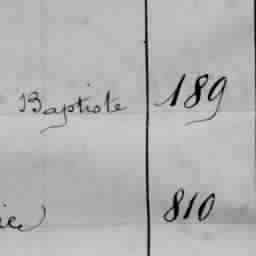 Baptiste 189
810